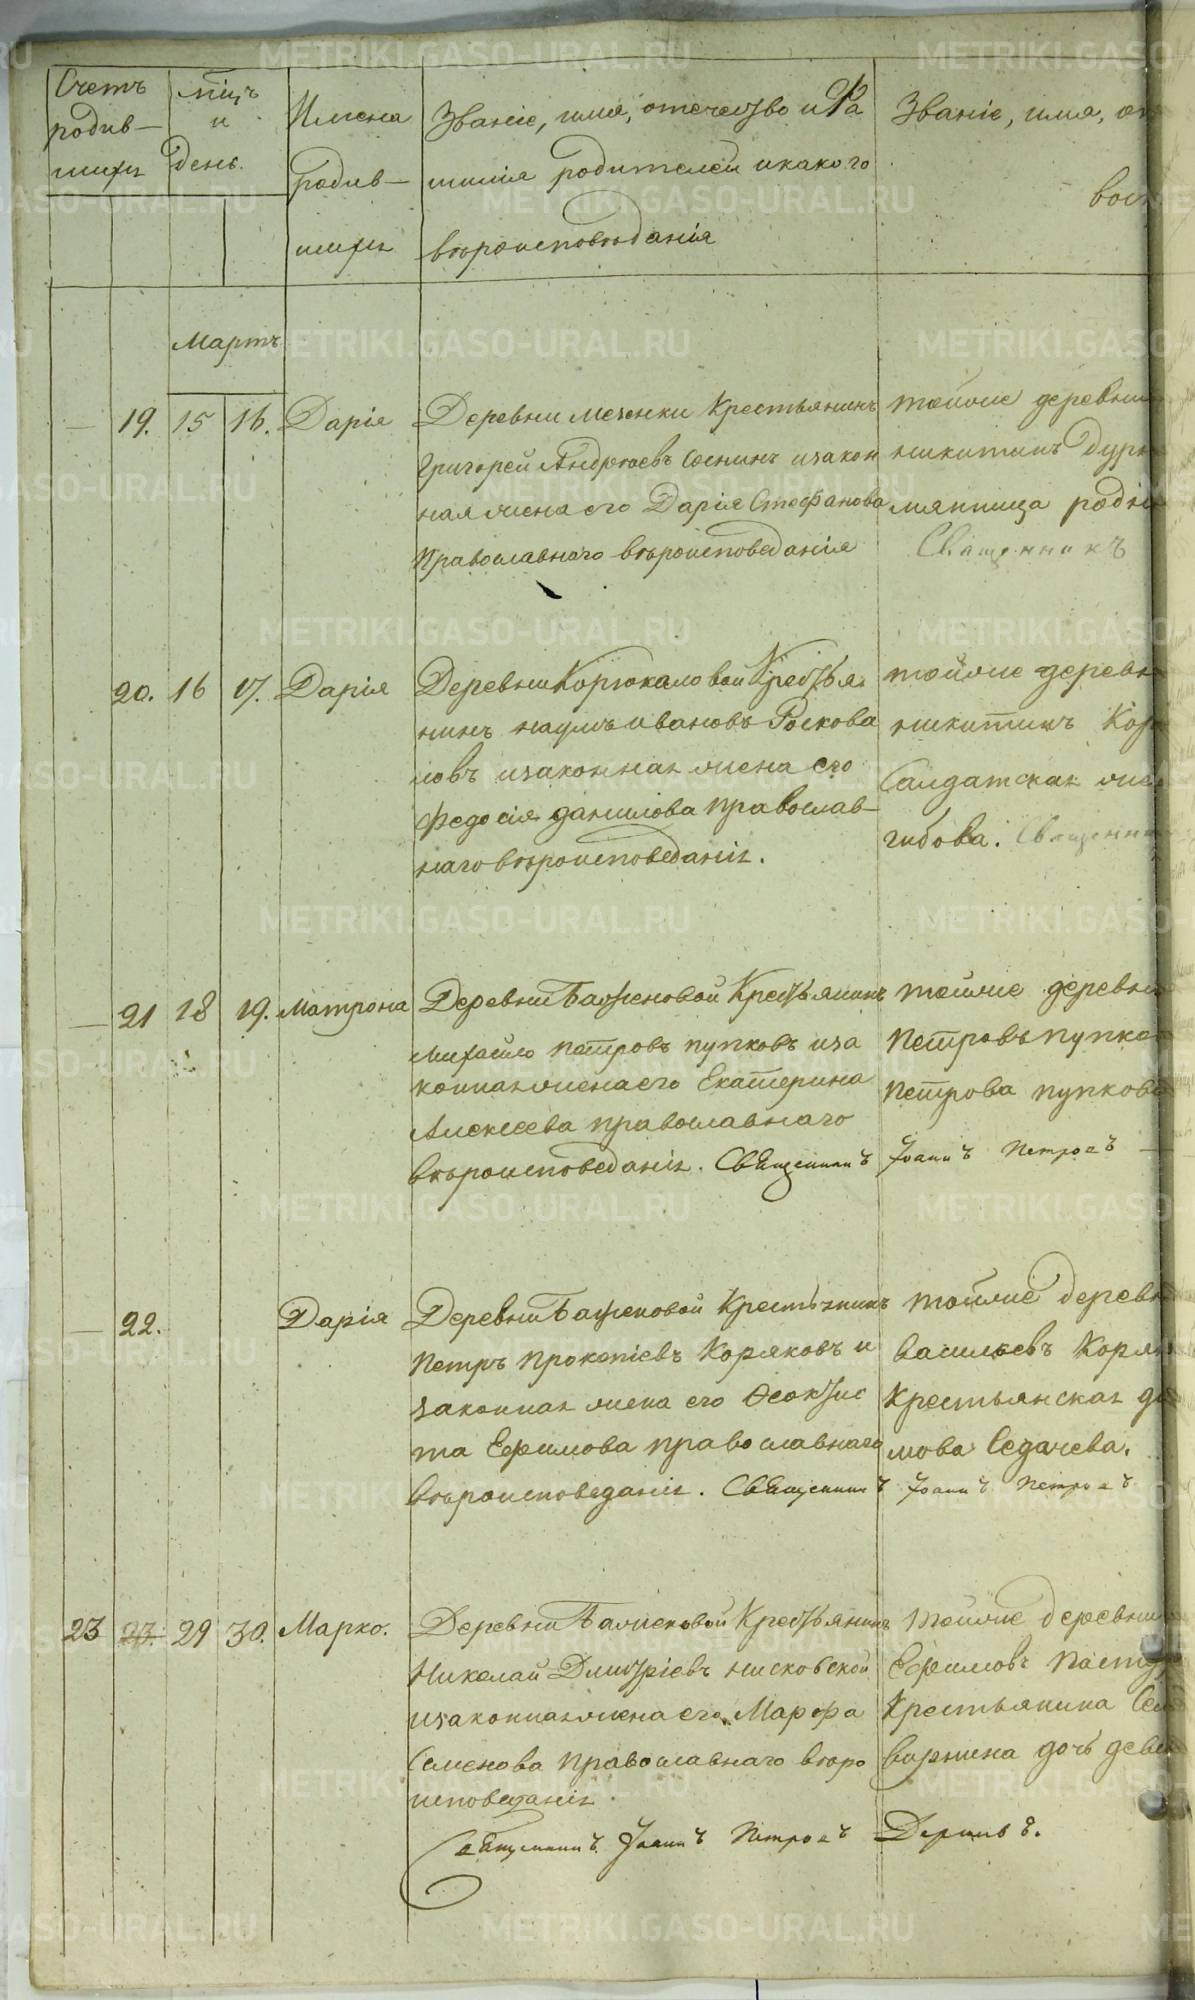 Счетъ
родив—
шихъ
мѣцъ
и
день.
Имена
родив—
шихъ
Званіе, имя, отечество и Фа
милія родителей и какого
вѣроисповѣданія
Званіе, имя,
Мартъ
19. 15 16. Дарія
Деревни Мезенки Крестьянинъ
Григорей Андреевъ Соснинъ изакон
ная жена его Дарія Стефанова
Православнаго вѣроисповеданія
тойже деревни
никитинъ
родна
Священникъ
20. 16 17. Дарія
Деревни Корюкаловой Крестья
нинъ наумъ ивановъ
ловъ изаконная жена его
Федосія данилова православ—
наго вѣроисповеданія.
тойже
никитинъ
Салдатская
гибова.
21 18 19. Матрона
Деревни Баженовой Крестьянинъ
Михайло петровъ пупковъ иза
конная жена его Екатерина
Алексеева православнаго
вѣроисповеданія. Священникъ Іоаннъ Петровъ
тойже деревни
Петровъ
Петрова
22. Дарія
Деревни Баженовой Крестьянинъ
Петръ Прокопіевъ Коряковъ и
законная жена его Ѳеоктис
та Ефимова православнаго
вѣроисповеданія. Священникъ Іоаннъ Петровъ
тойже
васильевъ
Крестьянская
мова Седачева.
23 23. 29 30. Марко.
Деревни Баженовой Крестьянинъ
Николай Дмитріевъ нисковской
изаконная жена его Марфа
Семенова православнаго вѣро
исповеданія.
Священникъ Іоаннъ Петровъ
тойже деревни
Ефимовъ
Крестьянина
дочь
METRIKI.GASO-URAL.RU